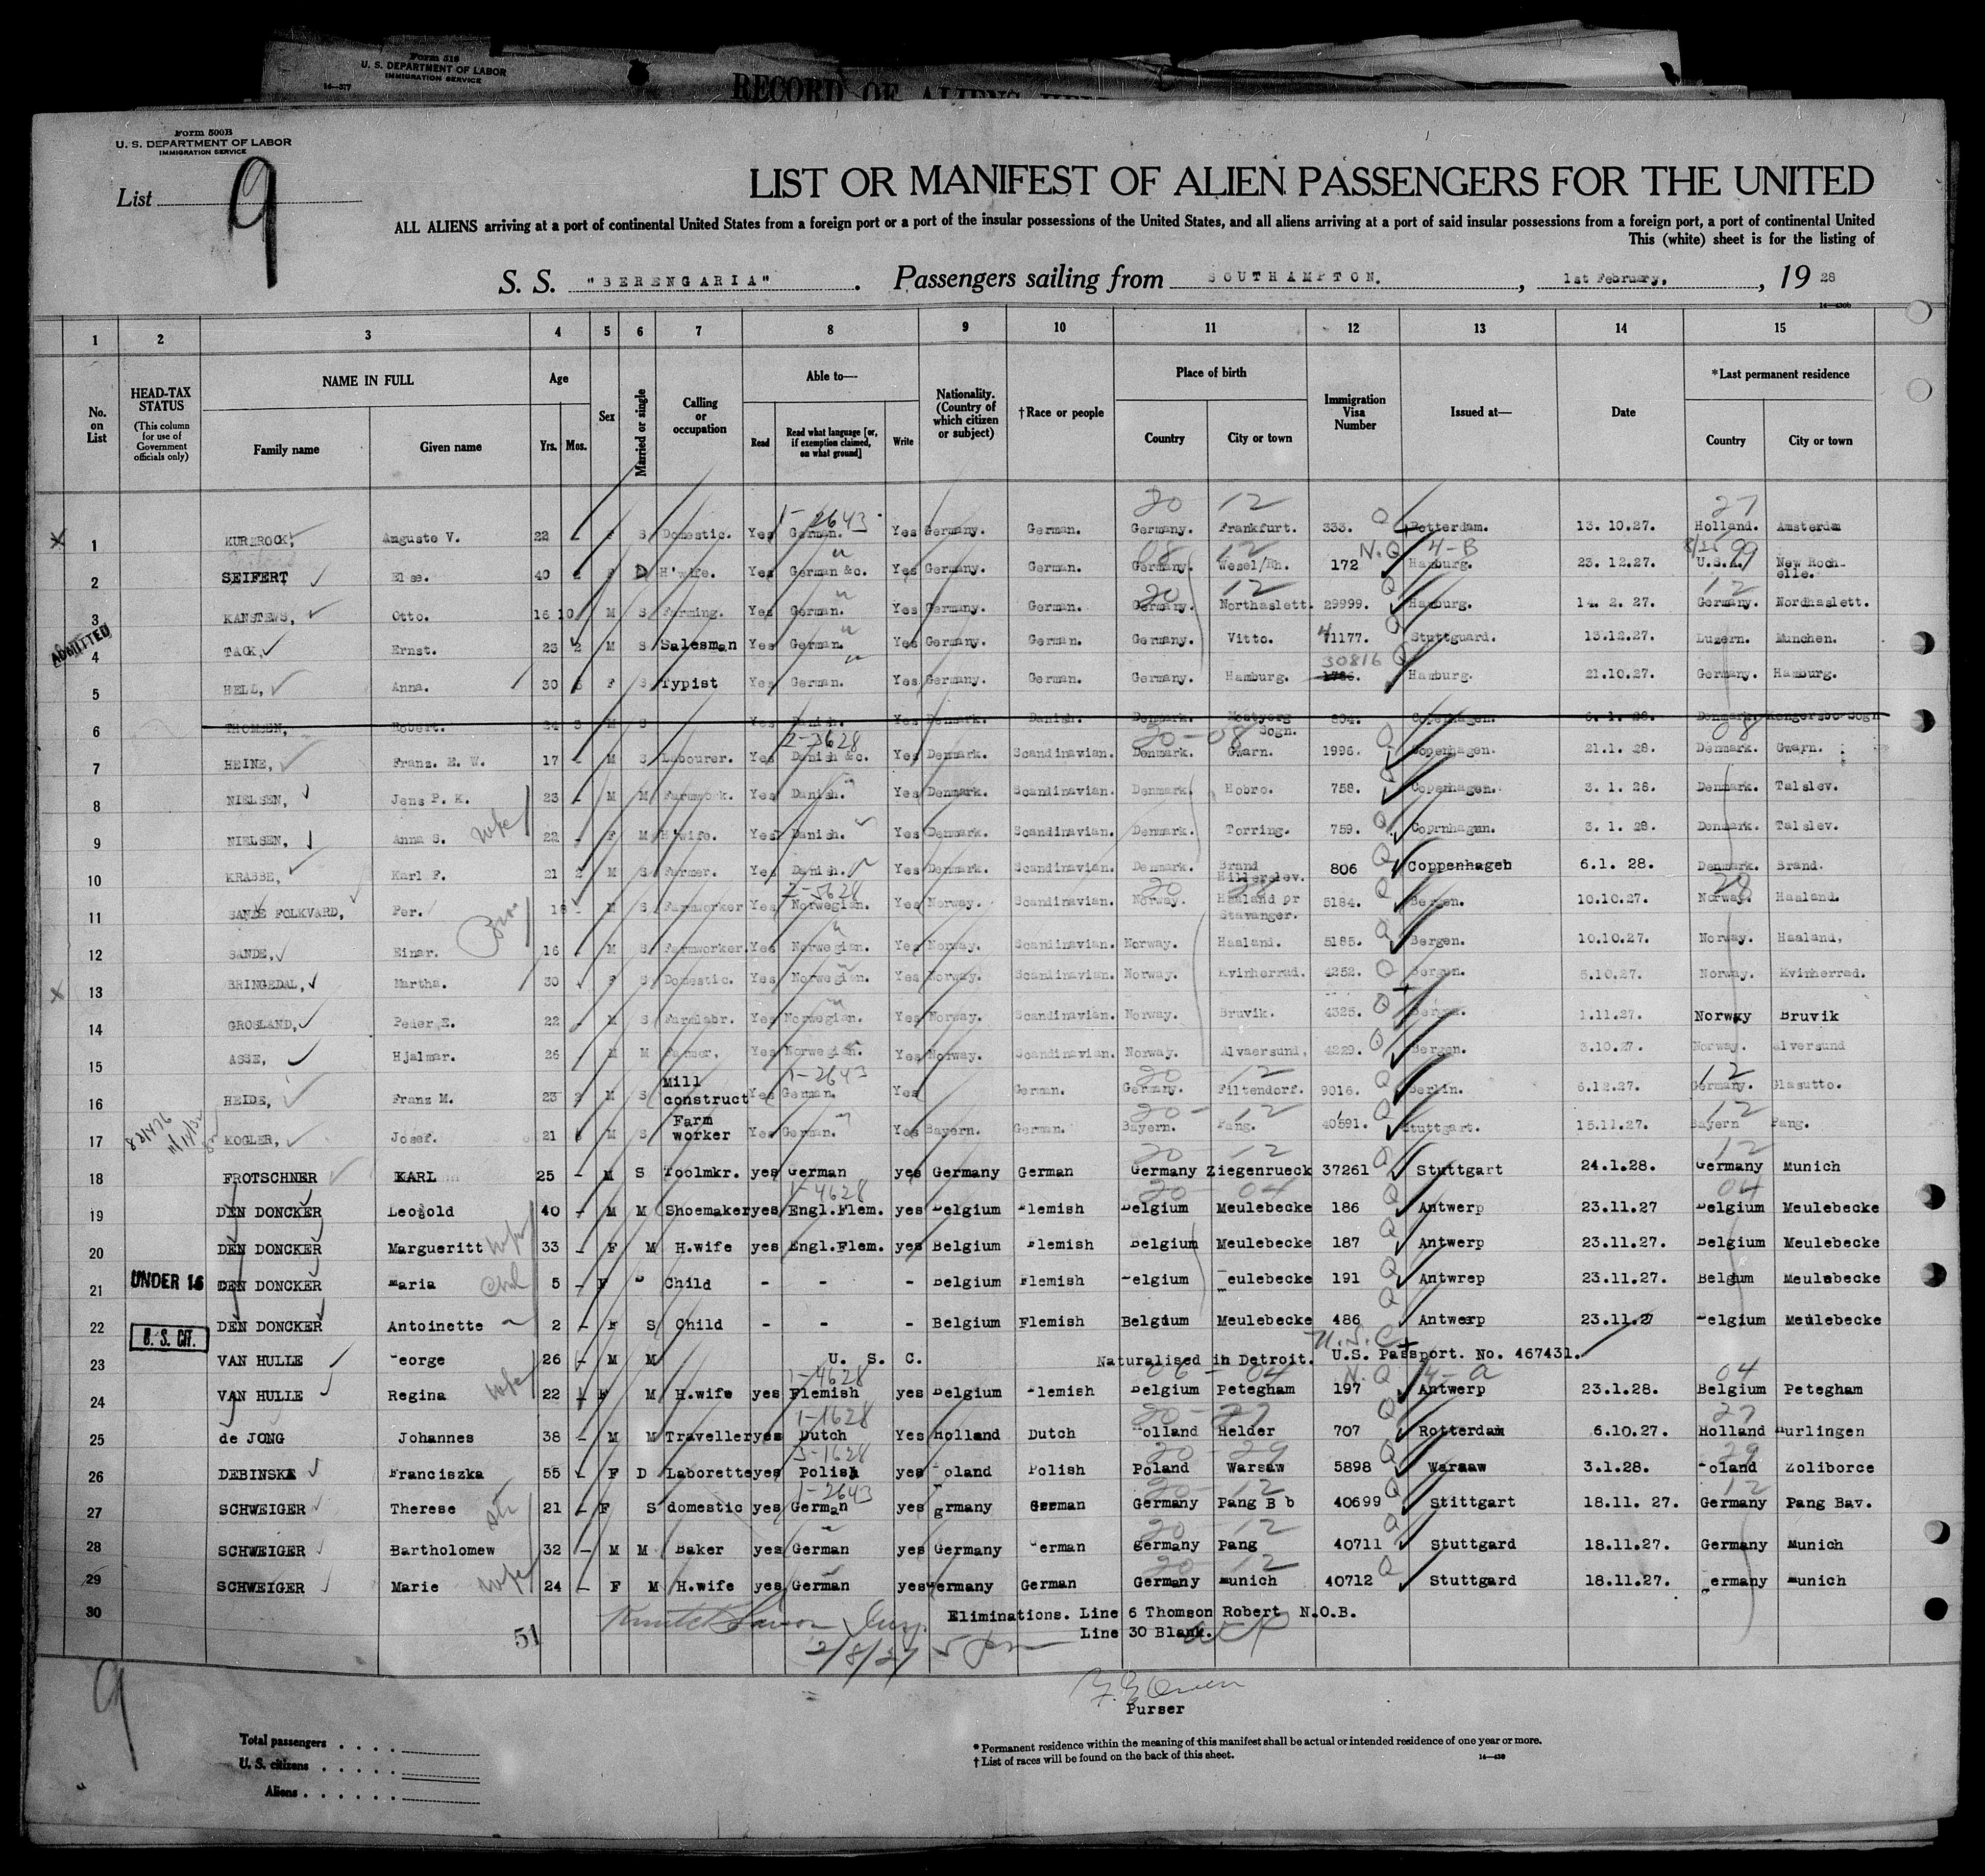 Form 518
U. S. DEPARTMENT OF LABOR
IMMIGRATION SERVICE
14—377
RECORD OF ALIENS
Form 500B
U. S. DEPARTMENT OF LABOR
IMMIGRATION SERVICE
List 9
LIST OR MANIFEST OF ALIEN PASSENGERS FOR THE UNITED
ALL ALIENS arriving at a port of continental United States from a foreign port or a port of the insular possessions of the United States, and all aliens arriving at a port of said insular possessions from a foreign port, a port of continental United
This (white) sheet is for the listing of
S. S. "BERENGARIA". Passengers sailing from SOUTHAMPTON. , 1st February, , 19 28
14—430b
1 2 3 4 5 6 7 8 9 10 11 12 13 14 15
No. on List
HEAD-TAX STATUS (This column for use of Government officials only)
NAME IN FULL Family name Given name
Age Yrs. Mos.
Sex
Married or single
Calling or occupation
Able to— Read Read what language [or, if exemption claimed, on what ground] Write
Nationality. (Country of which citizen or subject)
†Race or people
Place of birth Country City or town
Immigration Visa Number
Issued at—
Date
*Last permanent residence Country City or town
20 12 27
1-2643
X 1 KURBROCK, Auguste V. 22 - F S Domestic. Yes German. Yes Germany. German. Germany. Frankfurt. 333. Q Rotterdam. 13. 10.27. Holland. Amsterdm
08 12 N.Q 4-B 99
2 SEIFERT Else. 40 F D H'wife. Yes German &c. Yes Germany. German. Germany. Wesel/Rh. 172 Hamburg. 23. 12.27. U.S.A. New Roch-elle.
20 12 12
3 KANSTEWS, Otto. 16 10 M S Farming. Yes German. Yes Germany. German. Germany. Northaslett. 29999. Q Hamburg. 14. 2. 27. Germany. Nordhaslett.
ADMITTED
4 TACK, Ernst. 23 2 M S Salesman Yes German. Yes Germany. German. Germany. Vitto. 41177. Q Stuttguard. 13.12.27. Luzern. Munchen.
30816
5 HELL, Anna. 30 F S Typist Yes German. Yes Germany. German. Germany. Hamburg. Q Hamburg. 21.10.27. Germany. Hamburg.
6 THOMSEN, Robert. 24 3 M S Yes Danish. Yes Denmark. Danish. Denmark. Sogn. 804. Copenhagen. 6. 1. 28. Denmark.
2-3628 20-08 08
7 HEINE, Franz. E. W. 17 - M S Labourer. Yes Danish &c. Yes Denmark. Scandinavian. Denmark. Gwarn. 1996. Q Copenhagen. 21.1. 28. Denmark. Gwarn.
8 NIELSEN, Jens P. K. 23 - M M Farmwork. Yes Danish. Yes Denmark. Scandinavian. Denmark. Hobro. 758. Q Copenhagen. 3. 1. 28. Denmark. Talslev.
9 NIELSEN, Anna S. wife 22 - F M H'wife. Yes Danish. Yes Denmark. Scandinavian. Denmark. Torring. 759. Q Copnhagun. 3. 1. 28. Denmark. Talslev.
10 KRABBE, Karl F. 21 2 M S Farmer. Yes Danish. Yes Denmark. Scandinavian. Denmark. Brand Hillerslev. 806 Q Coppenhagen 6.1. 28. Denmark. Brand.
2-5628 20 28 28
11 SANDE FOLKVARD, Per. 18 - M S Farmworker Yes Norwegian. Yes Norway. Scandinavian. Norway. Haaland pr Stavanger. 5184. Q Bergen. 10.10.27. Norway. Haaland.
Bro
12 SANDE, Einar. 16 - M S Farmworker. Yes Norwegian. Yes Norway. Scandinavian. Norway. Haaland. 5185. Q Bergen. 10.10.27. Norway. Haaland,
X 13 BRINGEDAL, Martha. 30 - F S Domestic. Yes Norwegian. Yes Norway. Scandinavian. Norway. Kvinherrad. 4252. Q Bergen. 5.10.27. Norway. Kvinherrad.
14 GROSLAND, Peder E. 22 - M S Farmlabr. Yes Norwegian. Yes Norway. Scandinavian. Norway. Bruvik. 4325. Q Bergen. 1.11.27. Norway Bruvik
15 ASSE, Hjalmar. 26 - M M Farmer, Yes Norwegian. Yes Norway. Scandinavian. Norway. Alvaersund, 4229. Q Bergen. 3.10.27. Norway. alversund
1-2643 20 12 12
16 HEIDE, Franz M. 23 2 M S Mill construct Yes German. Yes German. Germany. Filtendorf. 9016. Q Berlin. 6.12.27. Germany. Glasutto.
20- 12 12
17 KOGLER, Josef. 21 M S Farm worker Yes German. Yes Bayern. German. Bayern. Pang. 40591. Q Stuttgart. 15.11.27. Bayern Pang.
20-12 12
18 FROTSCHNER KARL 25 - M S Toolmkr. yes German yes Germany German Germany Ziegenrueck 37261 Q Stuttgart 24.1.28. Germany Munich
1-4628 20 04 04
19 DEN DONCKER Leopold 40 - M M Shoemaker yes Engl.Flem. yes Belgium Flemish Belgium Meulebecke 186 Q Antwerp 23.11.27 Belgium Meulebecke
20 DEN DONCKER Margueritt wife 33 - F M H.wife yes Engl.Flem. yes Belgium Flemish Belgium Meulebecke 187 Q Antwerp 23.11.27. Belgium Meulebecke
UNDER 16
21 DEN DONCKER Maria Chd 5 - F Child - - - Belgium Flemish Belgium Meulebecke 191 Q Antwrep 23.11.27. Belgium Meulebecke
22 DEN DONCKER Antoinette 2 - F S Child - - - Belgium Flemish Belgium Meulebecke 486 Q Antwerp 23.11.2 Belgium Meulebecke
U. S. CIT. U.S.C
23 VAN HULLE George 26 - M M U. S. C. Naturalised in Detroit. U.S. Passport. No. 467431.
1-4628 06-04 N.Q 4-a 04
24 VAN HULLE Regina wife 22 F M H.wife yes Flemish yes Belgium Flemish Belgium Petegham 197 Antwerp 23.1.28. Belgium Petegham
1-1628 20-27 27
25 de JONG Johannes 38 - M M Traveller yes Dutch Yes Holland Dutch Holland Helder 707 Q Rotterdam 6.10.27. Holland Hurlingen
3-1628 20-29 29
26 DEBINSKA Franciszka 55 - F D Laborette yes Polish yes Poland Polish Poland Warsaw 5898 Q Warsaw 3.1.28. Poland Zoliborce
1-2643 20-12 12
27 SCHWEIGER Therese 21 - F S domestic yes German yes grmany German Germany Pang B b 40699 Q Stittgart 18.11. 27. Germany Pang Bav.
20 12
28 SCHWEIGER Bartholomew 32 - M M Baker yes German yes Germany German germany Pang 40711 Q Stuttgard 18.11.27. Germany Munich
20 12
29 SCHWEIGER Marie wife 24 - F M H.wife yes German yes Germany German Germany Munich 40712 Q Stuttgard 18.11.27. Germany Munich
30 Eliminations. Line 6 Thomson Robert N.O.B.
51 Line 30 Blank.
2/8/27 5 pm
9
Purser
Total passengers . . . .
U. S. citizens . . . . .
Aliens . . . . . .
* Permanent residence within the meaning of this manifest shall be actual or intended residence of one year or more.
† List of races will be found on the back of this sheet.
14—430